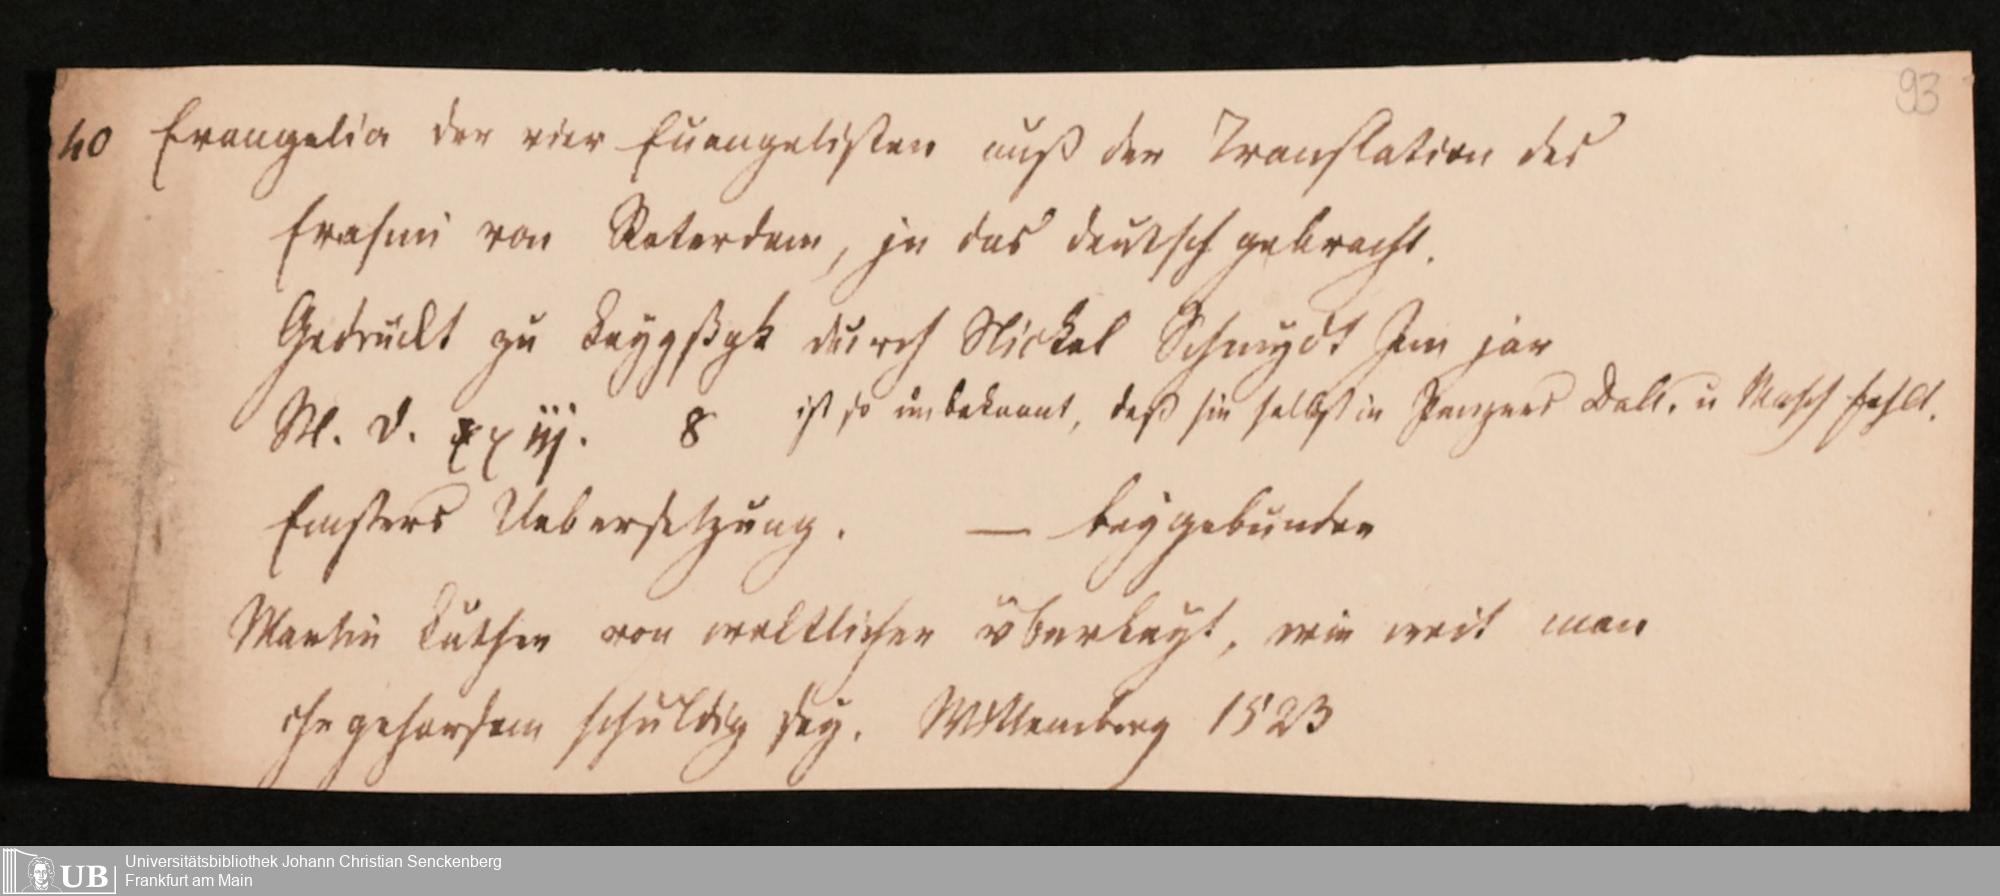 93
40 Evangelia der vier Euangelisten auß der Translation des
Erasmi von Roterdam, jn das deutsch gebracht.
Gedruckt zu Leypßgk durch Nickel Schmydt Jm jar
M. D. xxiij. 8 ist so unbekannt, daß sie selbst in Panzers u Masch fehlt.
Emsers Uebersetzung. — beygebunden
Martin Luther von weltlicher vberkeyt, wie weit man
yhr gehorsam schuldig sey. Wittemberg 1523
UB Universitätsbibliothek Johann Christian Senckenberg
Frankfurt am Main